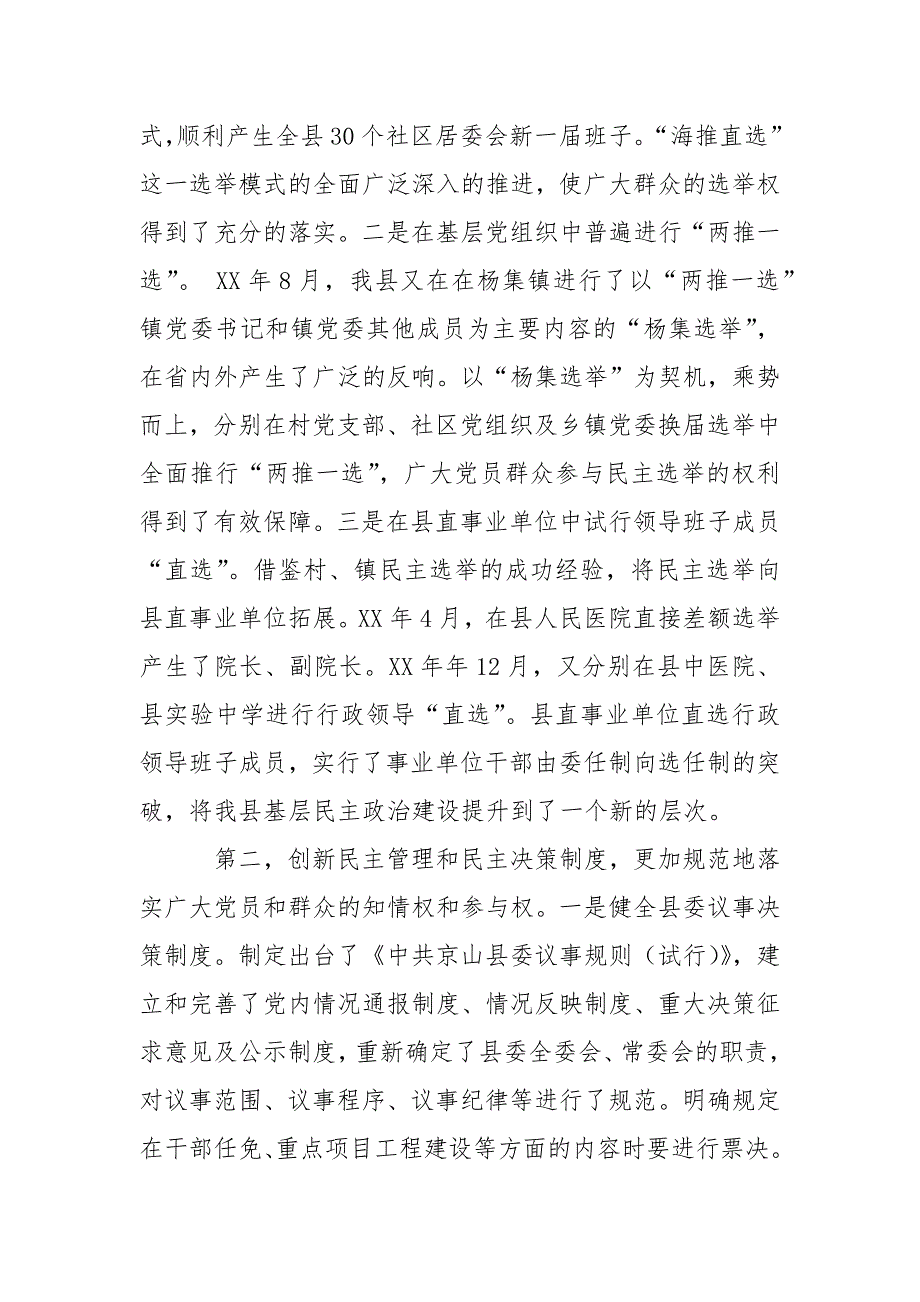 式,顺利产生全县 30 个社区居委会新一届班子。“海推直选”
这一选举模式的全面广泛深入的推进，使广大群众的选举权
得到了充分的落实。二是在基层党组织中普遍进行“两推一
选”。 XX 年 8 月，我县又在在杨集镇进行了以“两推一选”
镇党委书记和镇党委其他成员为主要内容的“杨集选举”，
在省内外产生了广泛的反响。以“杨集选举”为契机，乘势
而上，分别在村党支部、社区党组织及乡镇党委换届选举中
全面推行“两推一选”，广大党员群众参与民主选举的权利
得到了有效保障。三是在县直事业单位中试行领导班子成员
“直选”。借鉴村、镇民主选举的成功经验，将民主选举向
县直事业单位拓展。XX 年 4 月，在县人民医院直接差额选举
产生了院长、副院长。XX 年年 12 月，又分别在县中医院、
县实验中学进行行政领导“直选”。县直事业单位直选行政
领导班子成员，实行了事业单位干部由委任制向选任制的突
破，将我县基层民主政治建设提升到了一个新的层次。
第二，创新民主管理和民主决策制度，更加规范地落
实广大党员和群众的知情权和参与权。一是健全县委议事决
策制度。制定出台了《中共京山县委议事规则（试行）》，建
立和完善了党内情况通报制度、情况反映制度、重大决策征
求意见及公示制度，重新确定了县委全委会、常委会的职责，
对议事范围、议事程序、议事纪律等进行了规范。明确规定
在干部任免、重点项目工程建设等方面的内容时要进行票决。